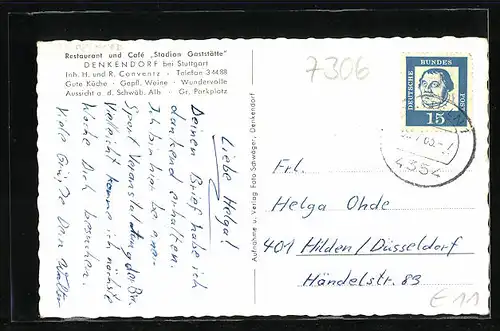 Restaurant und Café „Stadion Gaststätte"
DENKENDORF bei Stuttgart
Inh. H. und R. Conventz · Telefon 34488
Gute Küche · Gepfl. Weine · Wundervolle
Aussicht a. d. Schwäb. Alb · Gr. Parkplatz
Liebe Helga!
Deinen Brief habe ich
dankend erhalten.
Ich bin hier bei einer
Sport Veranstaltung der
Vielleicht komme ich nächste
Woche Dich besuchen.
Viele Grüße Dein
Aufnahme u. Verlag Foto-Schwäger, Denkendorf
7306
DEUTSCHE BUNDESPOST
15
4354
Frl.
Helga Ohde
401 Hilden/Düsseldorf
Händelstr. 83
E 11